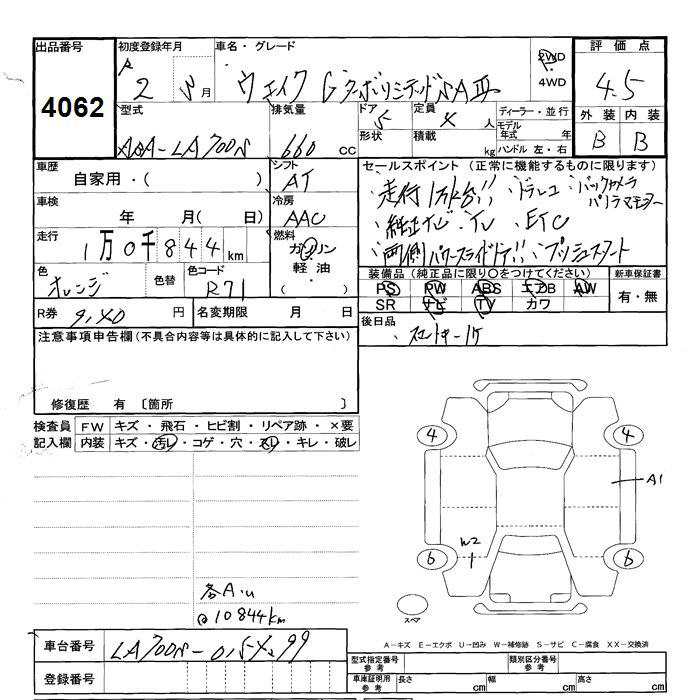 出品番号
4062
初度登録年月
R 2 5 月
車名・グレード
ウェイク GターボリミテッドSAⅢ
2WD
4WD
評価点
4.5
外装 内装
B B
型式
LA700S
排気量
660 CC
ドア 5
形状
定員 4 人
積載 kg
ディーラー・並行
モデル年式 年
ハンドル 左・右
車歴
自家用・( )
シフト
AT
車検
年 月( 日)
冷房
AAC
走行
1万0千844km
燃料
ガソリン
軽油・
( )
色
オレンジ
色替
色コード
R71
R券
円
名変期限 月 日
セールスポイント(正常に機能するものに限ります)
・走行1万km台!! ・ドラレコ ・バックカメラ
パノラマモニター
・純正ナビ・TV ・ETC
・両側パワースライドドア!! ・プッシュスタート
装備品(純正品に限り○をつけてください)
PS PW ABS エアB AW
SR ナビ TV カワ
新車保証書
有・無
後日品
注意事項申告欄(不具合内容等は具体的に記入して下さい)
修復歴 有 〔箇所 〕
検査員記入欄
FW キズ・飛石・ヒビ割・リペア跡・×要
内装 キズ・汚レ・コゲ・穴・スレ・キレ・破レ
各A・U
@10844km
4 4
A1
W2
6 6
スペア
A-キズ E-エクボ U-凹み W-補修跡 S-サビ C-腐食 XX-交換済
車台番号
LA700S-
登録番号
型式指定番号
参考
類別区分番号
参考
車庫証明用
参考
長さ cm 幅 cm 高さ cm